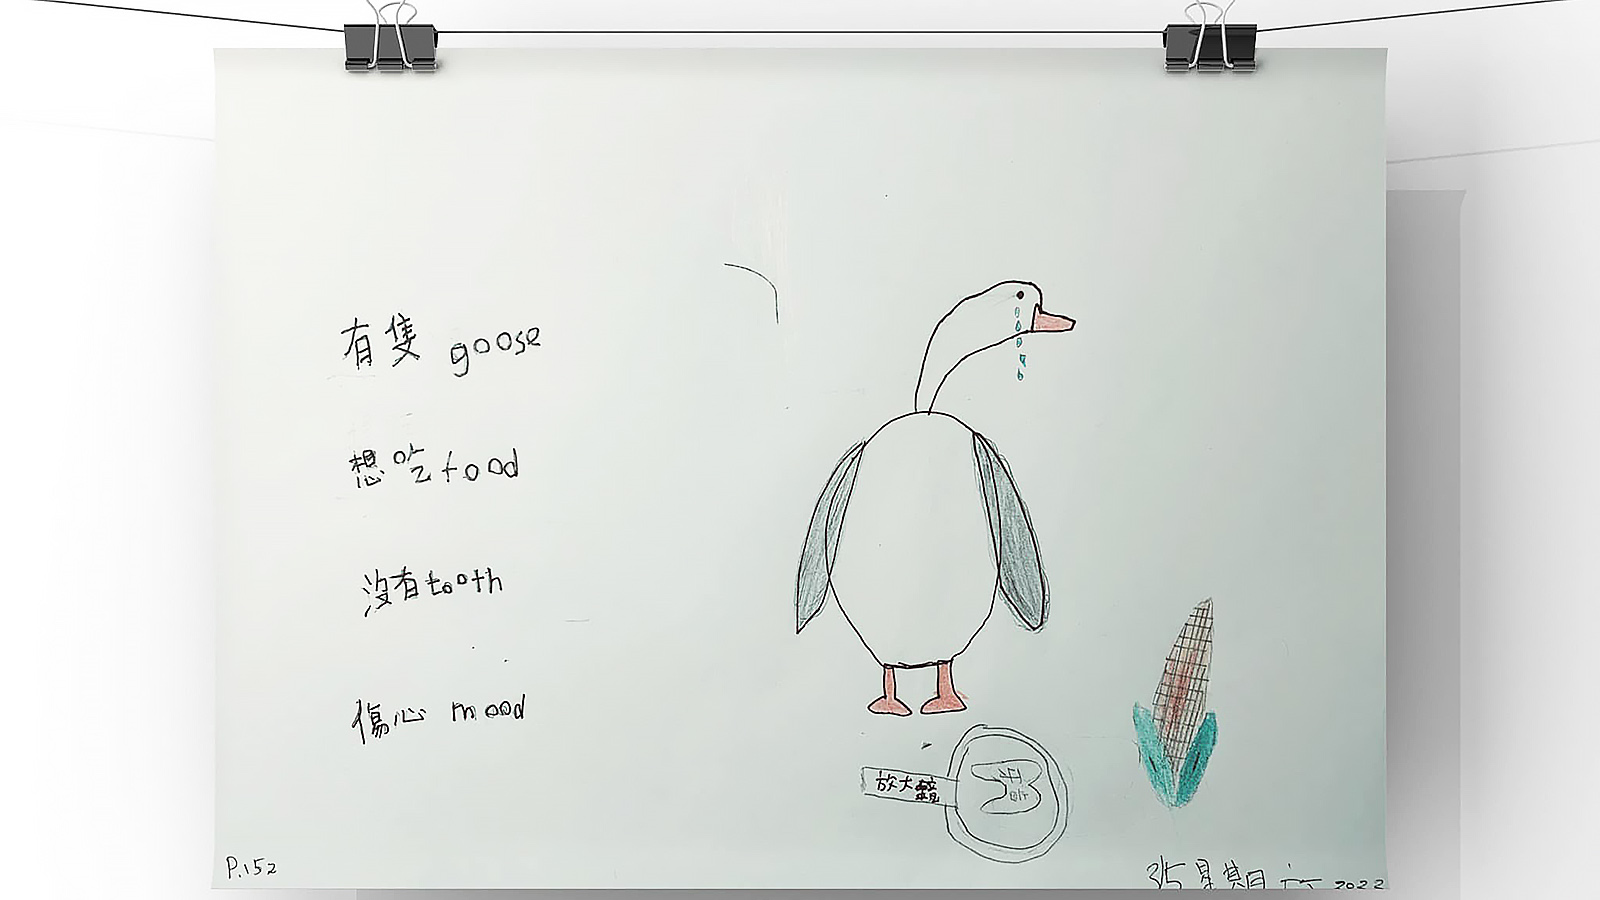 有隻 goose
想吃 food
沒有 tooth
傷心 mood
放大鏡
P.152
3/5 星期六 2022